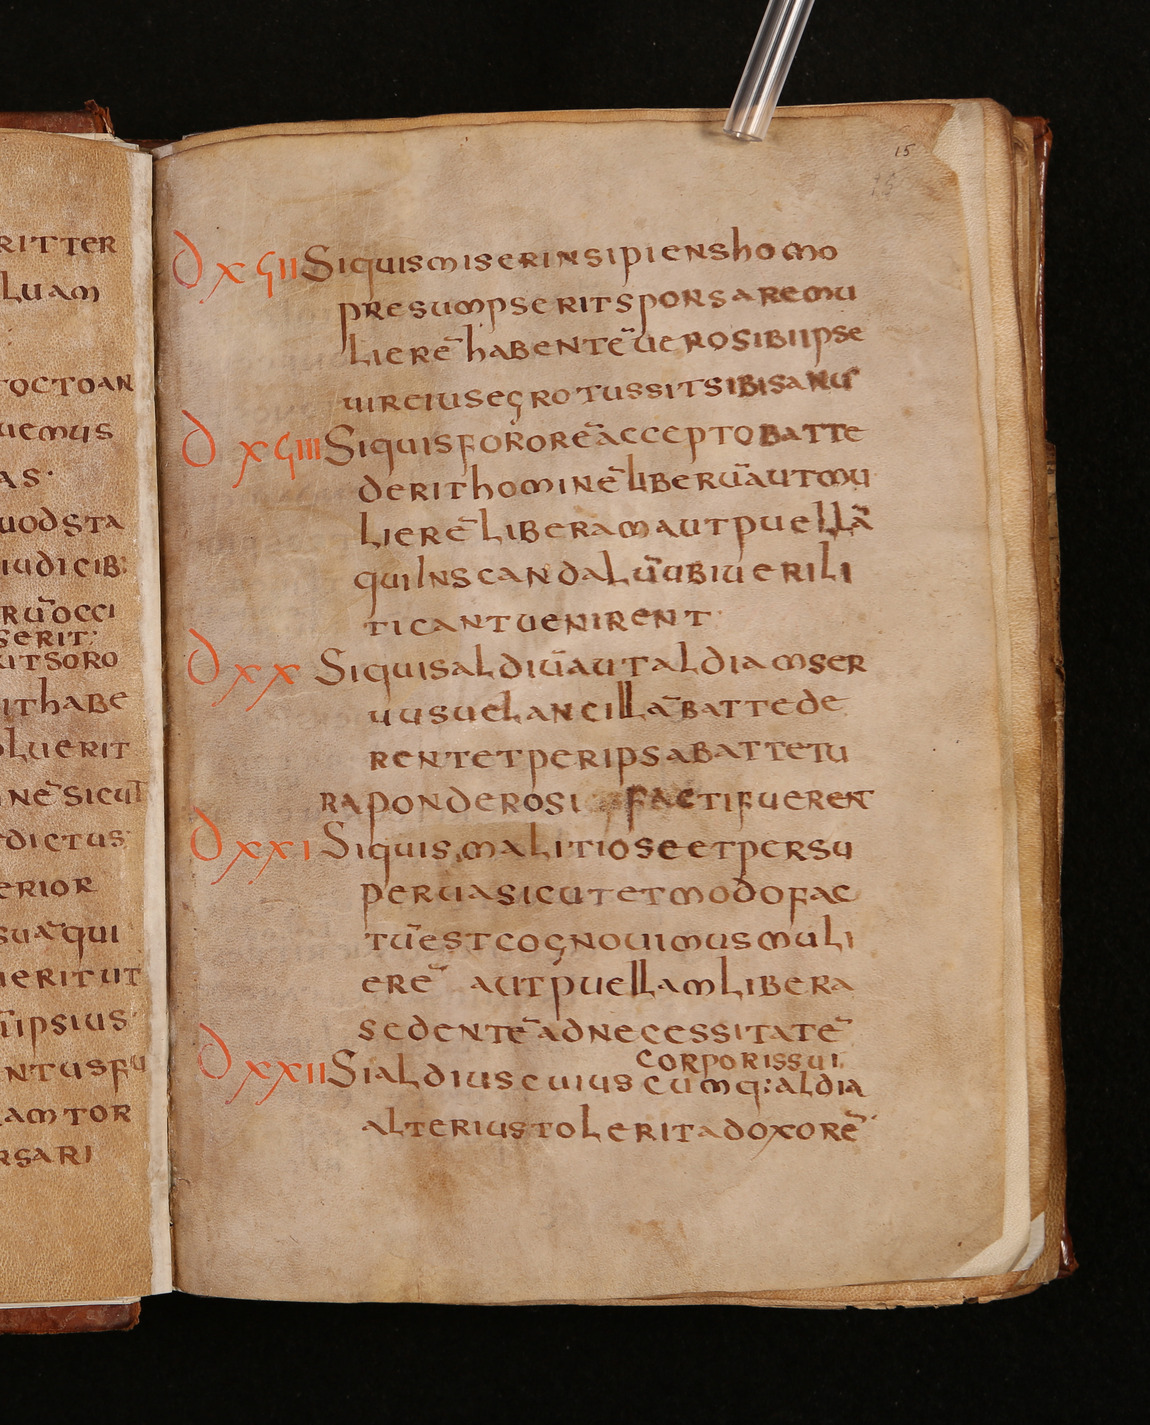 RITTER
LUAM
TOCTOAN
UEMUS
AS·
UODSTA
IUDICIB:
RŪOCCI
SERIT;
UTSORO
ITHABE
OLUERIT
NĒSICUT
EDICTUS·
ERIOR
SUĀQUI
IERITUT
TIPSIUS·
NTUSFU
AMTOR
RSARI
15
D XϚII Siquismiserinsipienshomo
presumpseritsponsaremu
lierē habentēuerosibiipse
uireiusegrotussitsibisanus
D XϚIII Siquisforōrēacceptobatte
derithominēliberūautmu
lierēliberamautpuellā
quiinscandalūubiuerili
ticantuenirent·
D XX Siquisaldiūautaldiamser
uusuelancillābattede
rentetperipsabattetu
raponderosi factifuerent
D XXI Siquismalitioseetpersu
peruasicutetmodofac
tūestcognouimusmuli
erē autpuellamlibera
sedentēadnecessitatē
corporissui,
D XXII Sialdiuscuiuscumq:aldia
alteriustoleritadoxorē